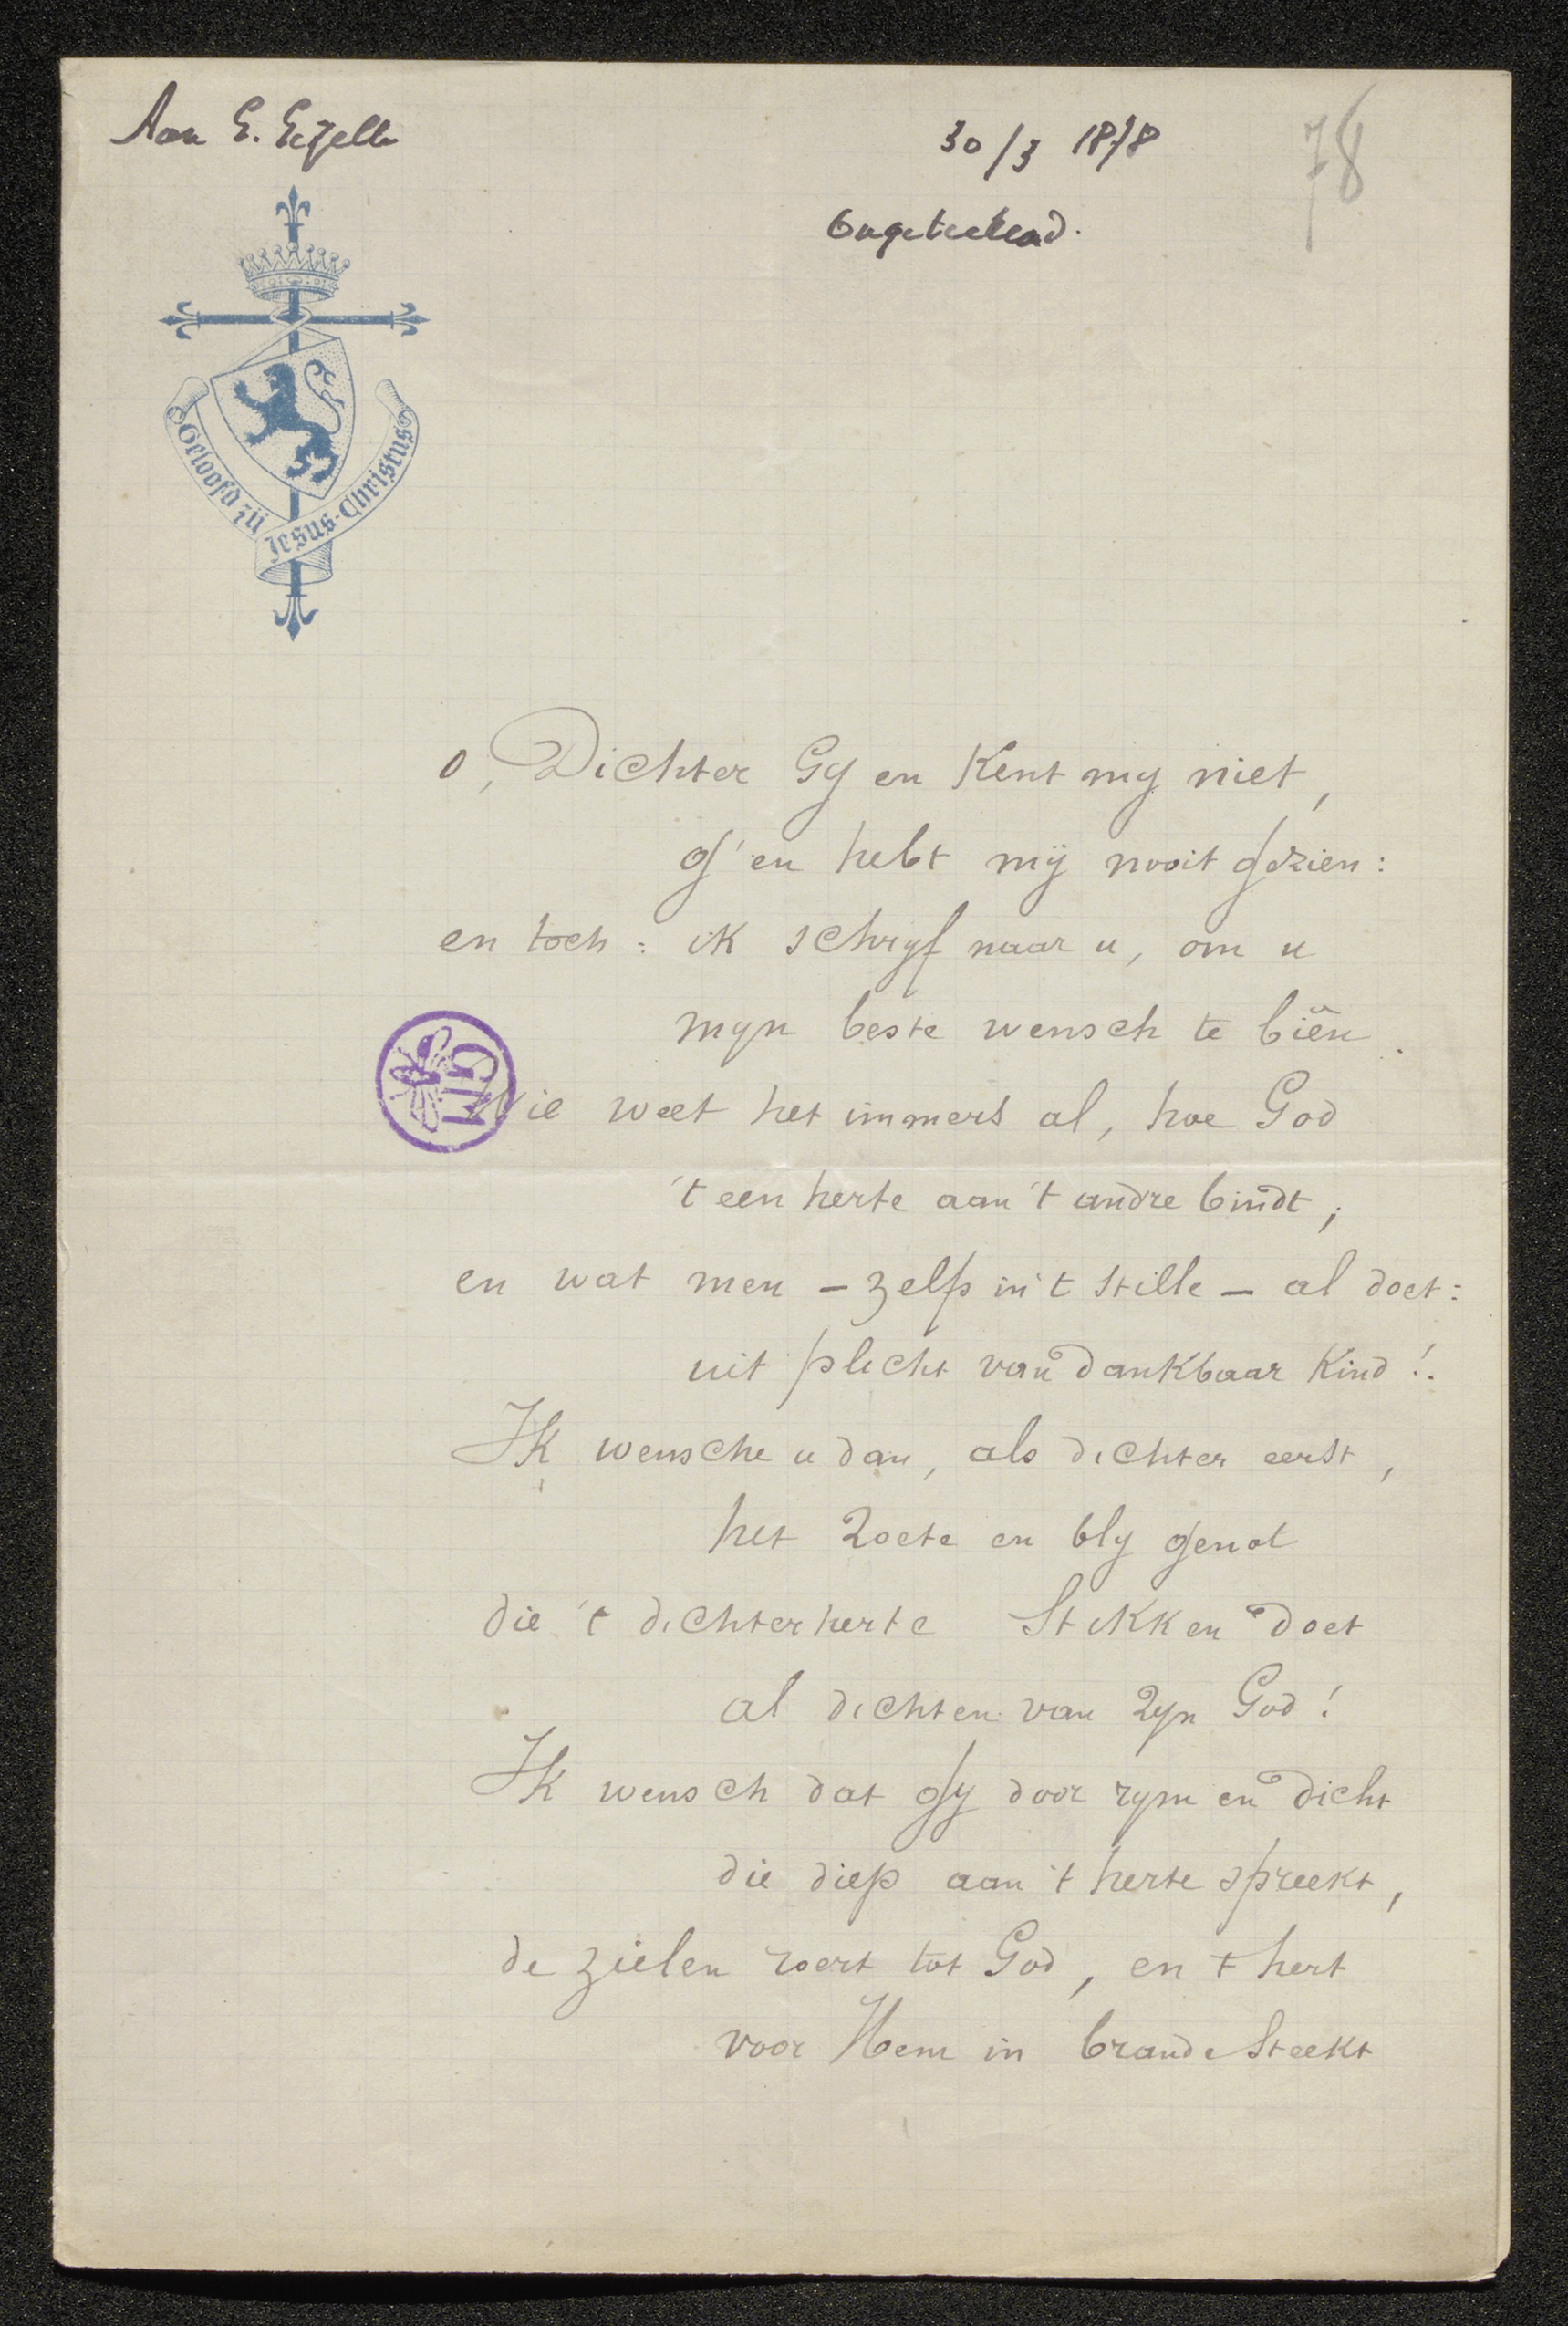 Aan G. Gezelle
30/3 1878
78
Ongeteekend.
Geloofd zij Jesus-Christus
O, Dichter Gy en Kent my niet,
g'en hebt mij nooit gezien:
en toch: ik schryf naar u, om u
myn beste wensch te biên.
Wie weet het immers al, hoe God
't een herte aan 't andre bindt;
en wat men – zelfs in 't stille – al doet:
uit plicht van dankbaar Kind!.
Ik wensche u dan, als dichter eerst,
het zoete en bly genot
die 't dichterherte Stikken doet
al dichten van zyn God!
Ik wensch dat gy door rym en dicht
die diep aan 't herte spreekt,
de zielen roert tot God, en 't hert
voor Hem in brande Steekt